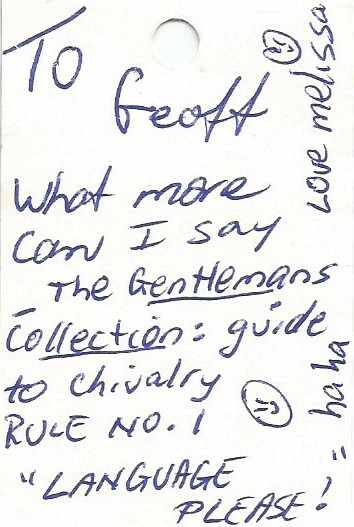 To
Geoff
What more
Can I say
The Gentlemans
Collection: guide
to Chivalry
RULE NO. 1
"LANGUAGE
PLEASE!"
haha
Love melissa